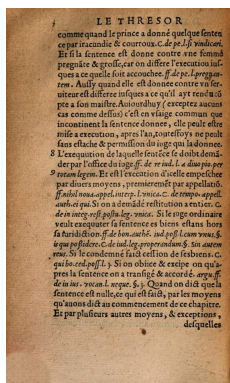 LE THRESOR
comme quand le prince a donné quelque senten
ce par iracundie & courroux. C. de pe. l. si vindicari.
Et si la sentence est donné contre vne femme
pregnãte & grosse, car on differe l'execution ius-
ques a ce quelle soit accouchee. ff. de pe. l. pregnan-
tem. Aussy quand elle est donnee contre vn ser-
uiteur est differee iusques a ce qu'il ayt rendu cõ
pte a son maistre. Auiourdhuy (exceptez aucuns
cas comme dessus) c'est en vsaige commun que
incontinent la sentence donnee, elle peult estre
mise a execution, apres l'an, toutesfoys ne peult
sans estache & permission du iuge qui la donnee.
8 L'exequution de laquelle sentẽce se doibt demã-
der par l'office du iuge. ff. de re iud. l. a diuo pio. per
9 rotam legem. Et est l'execution d'icelle empeschee
par diuers moyens, premierement par appellatiõ.
ff. nihil noua. appel. interp. l. vnica. C. de tempo. appell.
auth. ei qui. Si on a demãdé restitution a entier. C.
de in integ. rest. postu. leg. vnica. Si le iuge ordinaire
veult exequuter sa sentence es biens estans hors
sa iuridiction. ff. de bon. auth. iud. poss. l. cum vnus. §.
is qui possidere. C. de iud. leg. properandum. §. Sin autem
reus. Si le condemné faict cession de ses biens. C.
qui bo. ced. poss. l. 3. Si on obiice & excipe on qu'a-
pres la sentence on a transigé & accordé. argu. ff.
de in ius. vocan. l. neque. §. 3. Quand on dict que la
sentence est nulle, ce qui est faict, par les moyens
qu'auons dict au commencement de ce chapitre.
Et par plusieurs autres moyens, & exceptions,
desquelles